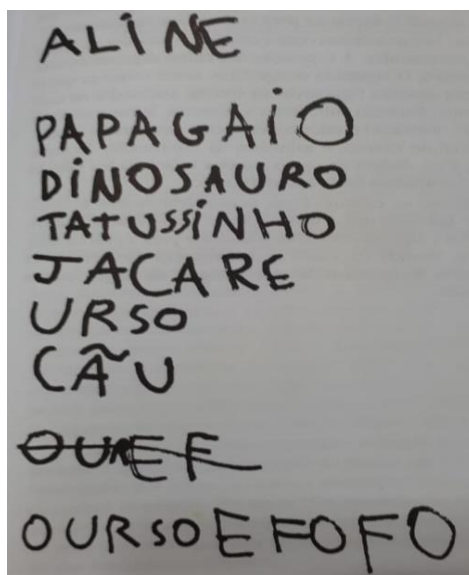 ALINE
PAPAGAIO
DINOSAURO
TATUSSINHO
JACARE
URSO
CÃU
OURSO E FOFO